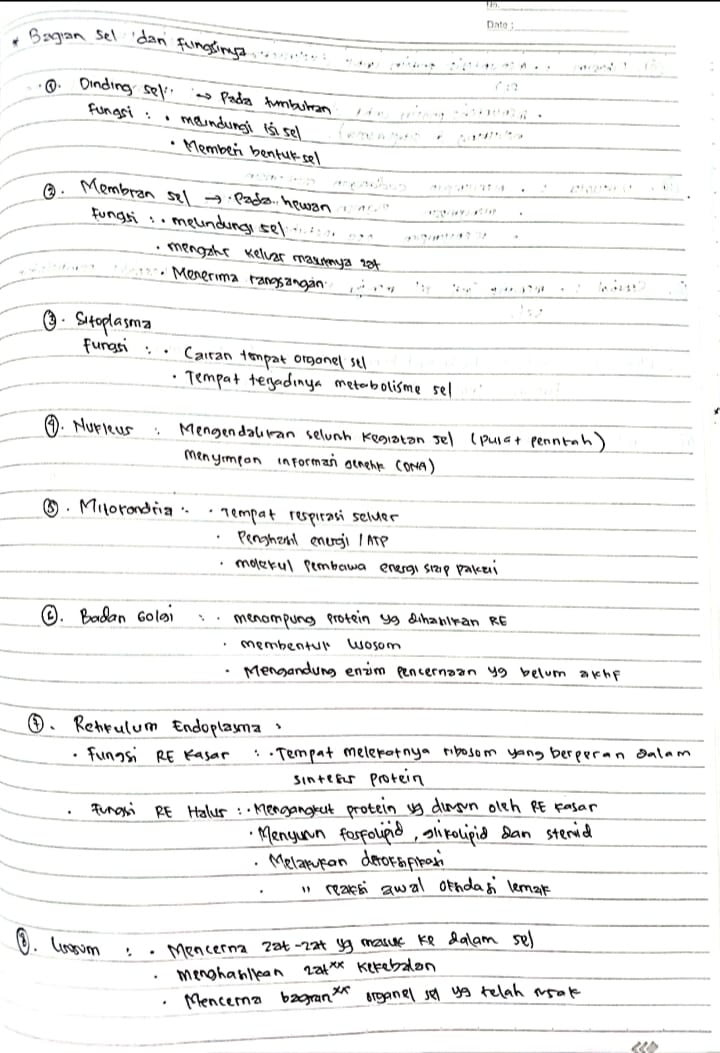 No.
Date :
* Bagian sel dan fungsinya
①. Dinding sel → Pada tumbuhan
Fungsi : • melindungi isi sel
• Memberi bentuk sel
②. Membran sel → Pada hewan
Fungsi : • melindungi sel
• mengatur keluar masuknya zat
• Menerima rangsangan
③. Sitoplasma
Fungsi : • Cairan tempat organel sel
• Tempat terjadinya metabolisme sel
④. Nukleus : Mengendalikan seluruh kegiatan sel (pusat perintah)
menyimpan informasi genetik (DNA)
⑤. Mitokondria : • Tempat respirasi seluler
• Penghasil energi / ATP
• molekul pembawa energi siap pakai
⑥. Badan Golgi : • menampung protein yg dihasilkan RE
• membentuk lisosom
• Mengandung enzim pencernaan yg belum aktif
⑦. Retikulum Endoplasma :
• Fungsi RE Kasar : • Tempat melekatnya ribosom yang berperan dalam
sintesis protein
• Fungsi RE Halus : • Mengangkut protein yg disusun oleh RE kasar
• Menyusun fosfolipid, glikolipid dan steroid
• Melakukan detoksifikasi
• " reaksi awal oksidasi lemak
⑧. Lisosom : • Mencerna zat-zat yg masuk ke dalam sel
• menghasilkan zat×× kekebalan
• Mencerna bagian×× organel sel yg telah rusak